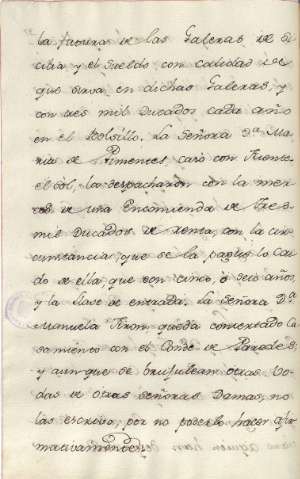 la futura de las Galeras de Si
cilia y el sueldo con calidad de
que sirva en dichas Galeras, y
con tres mil Ducados cada año
en el bolsillo. La Señora Dª Ma
ria de Pimentes caso con Fuente
el sol, las despacharon con la mer
ced de una Encomienda de tres
mil Ducados de renta, con la cir
cunstancia, que se la pague lo cai
do de ella, que son cinco, ó seis años,
y la llave de entrada. La Señora Dª
Manuela Giron queda concertado Ca
samiento con el Conde de Paredes;
y aunque se brujulean otras Bo
das de otras Señoras Damas, no
las escrivo, por no poderlo hacer afir
mativamente